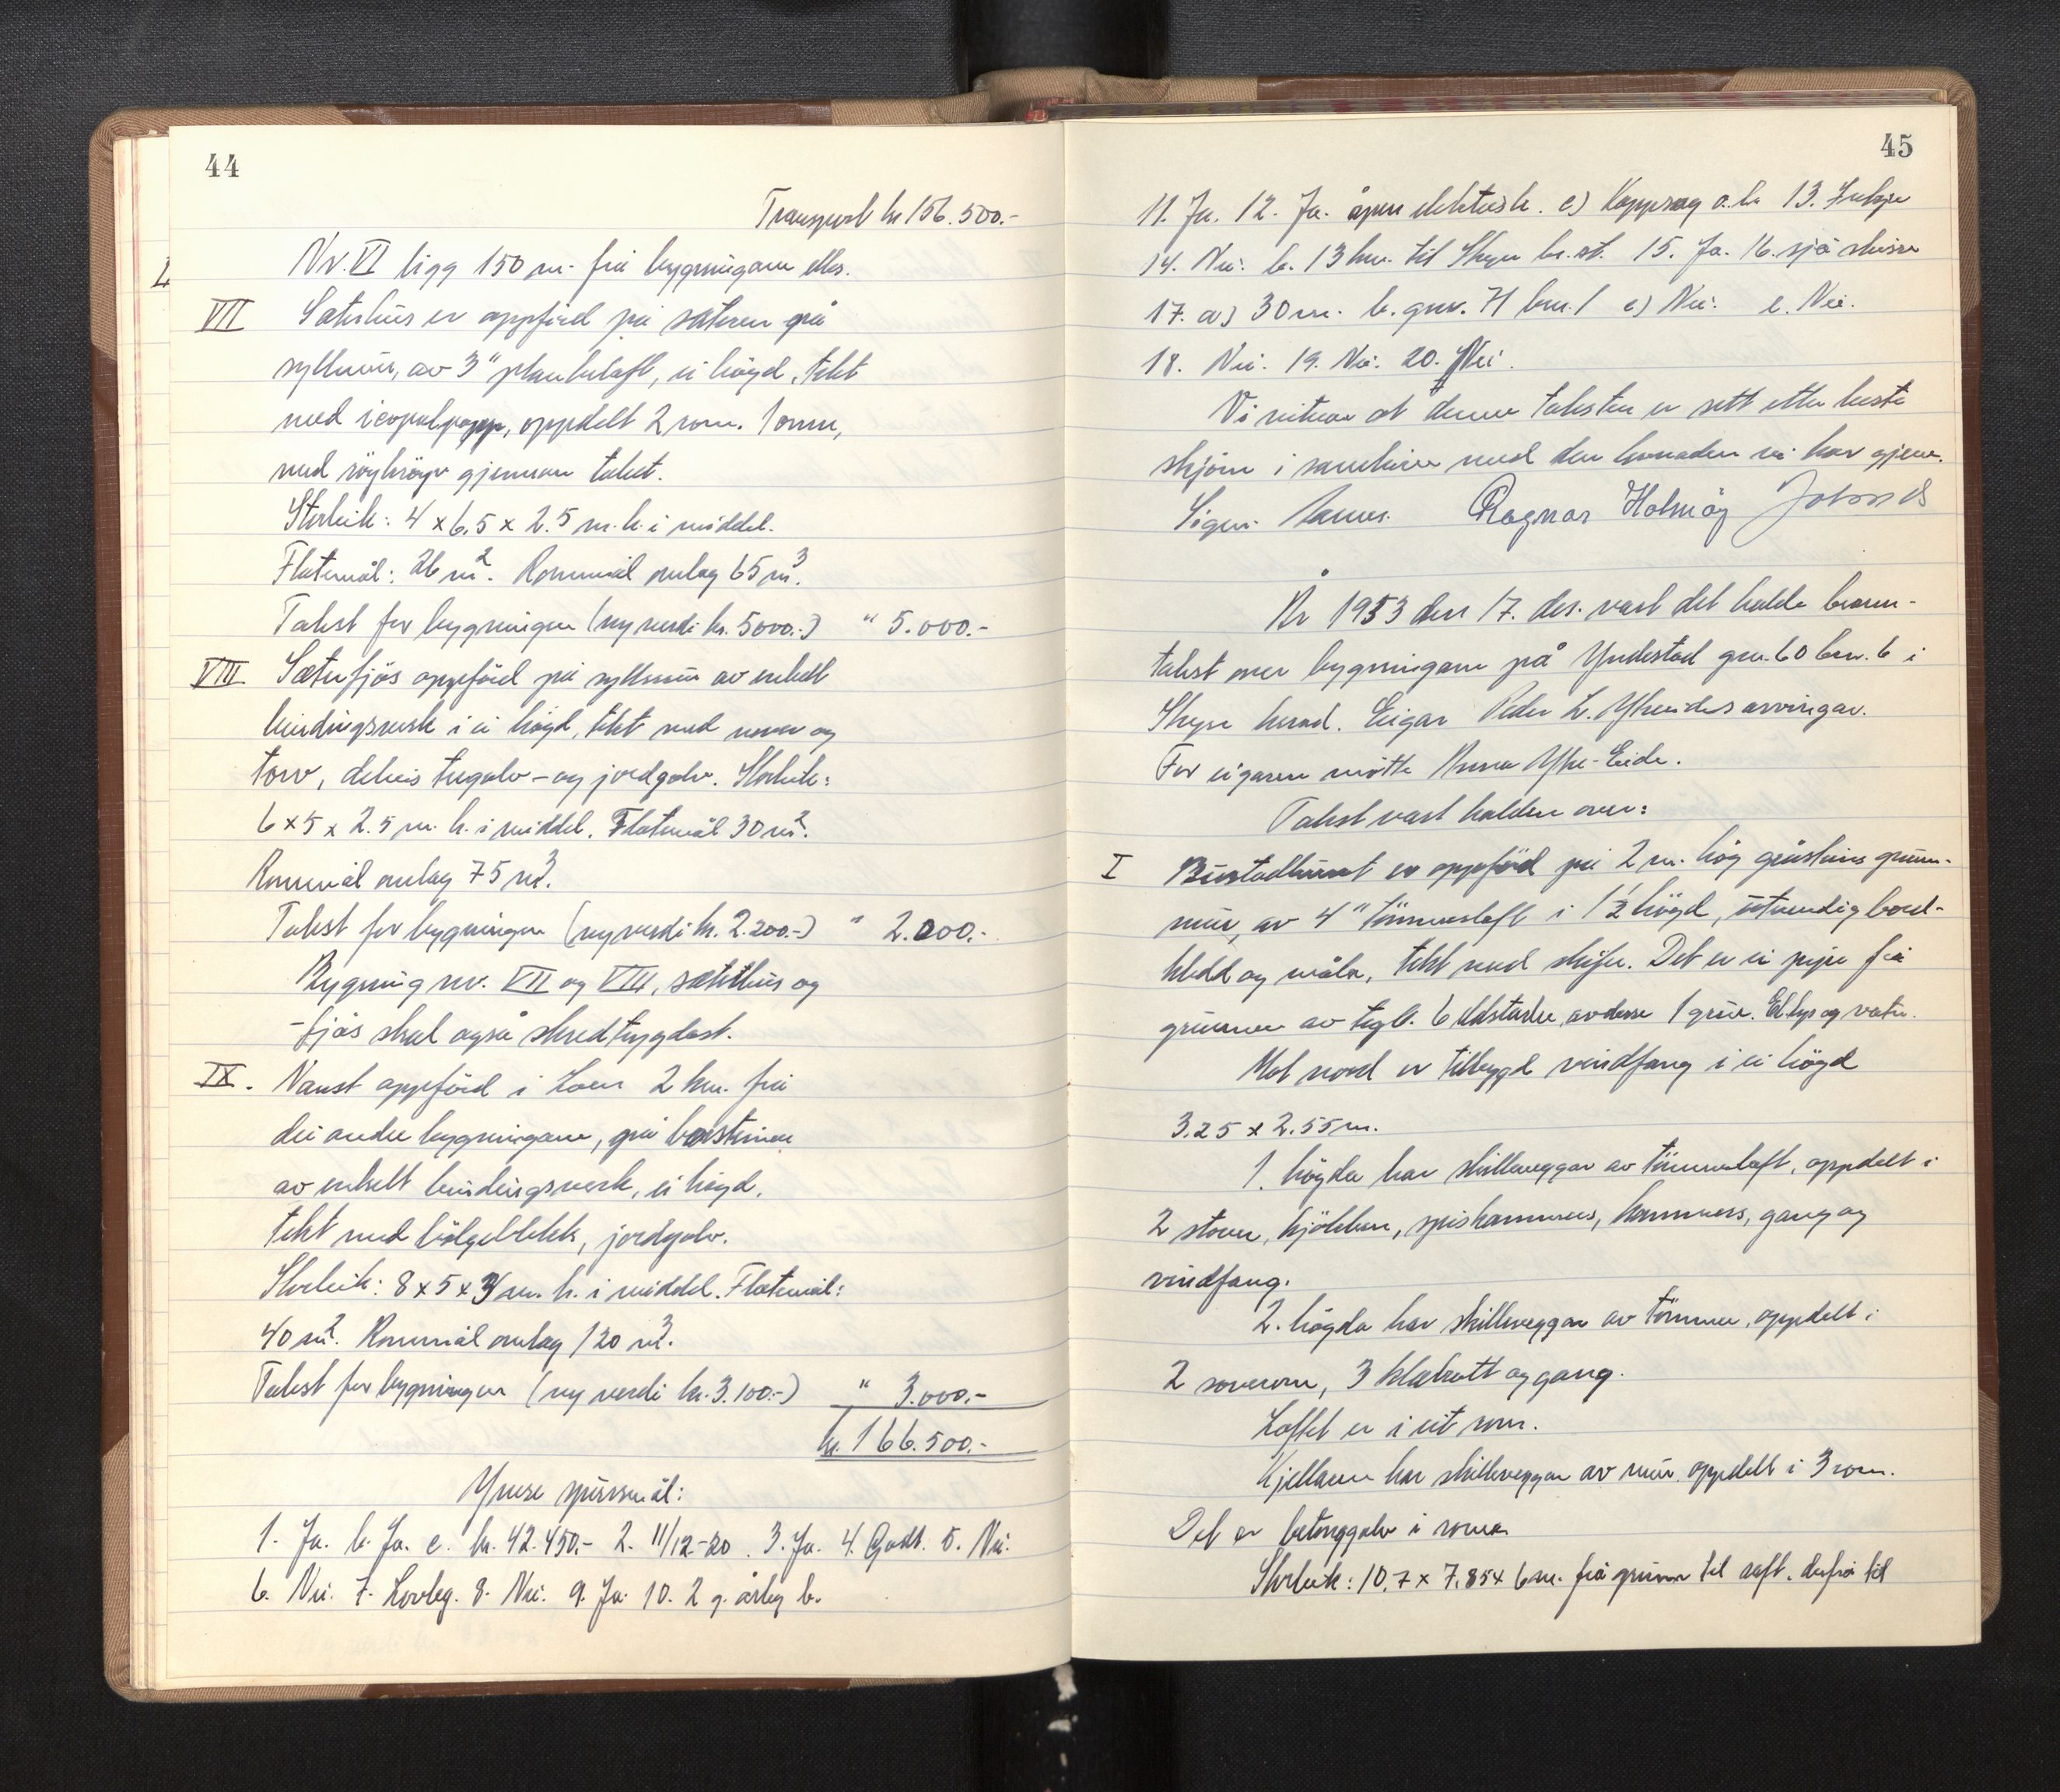 44
Transport kr 156.500.-
Nr. VI ligg 150 m. frå bygningane elles.
VII Sæterhus er oppförd på sæteren på
syllmur, av 3" plankelaft, ei högd, tekt
med icopalpapp, oppdelt 2 rom. 1 omn,
med röykröyr gjennom taket.
Storleik: 4 x 6,5 x 2.5 m. h. i middel.
Flatemål: 26 m². Rommål omlag 65 m³.
Takst for bygningen (ny verdi kr. 5000.-) " 5.000.-
VIII Sæterfjös oppförd på syllmur av enkelt
bindingsverk i ei högd, tekt med never og
torv, delvis tregolv- og jordgolv. Storleik:
6 x 5 x 2.5 m. h. i middel. Flatemål 30 m².
Rommål omlag 75 m³.
Takst for bygningen (ny verdi kr. 2.200.-) " 2.000.-
Bygning nr. VII og VIII, sæterhus og
-fjös skal også skredtrygdast.
IX. Naust oppförd i Loen 2 km. frå
dei andre bygningane, på
av enkelt bindingsverk, ei högd,
tekt med bölgeblekk, jordgolv.
Storleik: 8 x 5 x 3 m. h. i middel. Flatemål:
40 m². Rommål omlag 120 m³.
Takst for bygningen (ny verdi kr. 3.100.-) " 3.000.-
kr. 166.500.-
Ymse spursmål:
1. Ja. b. Ja. c. kr. 42.450.- 2. 11/12-20. 3. Ja. 4. Godt. 5. Nei.
6. Nei. 7. Lovleg. 8. Nei. 9. Ja. 10. 2 g. årleg b.
45
11. Ja. 12. Ja. åpen elektrisk. c) a. b. 13.
14. Nei. b. 13 km. til Stryn br. st. 15. Ja. 16. sjå skisse
17. a) 30 m. b. gnr. 71 bnr. 1 c) Nei. e. Nei.
18. Nei. 19. Nei. 20. Nei.
Vi vitnar at denne taksten er sett etter beste
skjön i samhöve med den kunnaden vi har gjeve.
Sigm. Ragnar Holmöy
År 1953 den 17. des. vart det halde brann-
takst over bygningane på Yndestad gnr. 60 bnr. 6 i
Stryn herad. Eigar Peder L. arvingar.
For eigaren møtte Anna Eide.
Takst vart halden over:
I Bustadhuset er oppförd på 2 m. hög gråsteins grunn-
mur, av 4" tömmerlaft i 1½ högd, utvendig bord-
kledd og måla, tekt med skifer. Det er ei pipe frå
grunnen av tegl. 6 eldstader, av desse 1 grue. El. lys og vatn.
Mot nord er tilbygd vindfang i ei högd
3.25 x 2.55 m.
1. högda har skilleveggar av tömmerlaft, oppdelt i
2 stover, kjökken, spiskammers, kammers, gang og
vindfang.
2. högda har skilleveggar av tömmer, oppdelt i
2 soverom, 3 klekott og gang.
Loftet er i eit rom.
Kjellaren har skilleveggar av mur, oppdelt i 3 rom.
Det er betonggolv i
Storleik: 10,7 x 7,85 x 6 m. frå grunn til raft, derfrå til